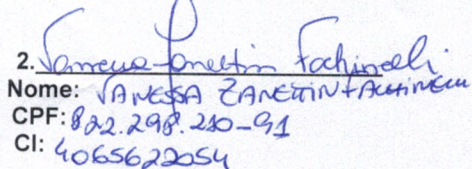 2. Vanessa Zanettin Fachinelli
Nome: VANESSA ZANETTIN FACHINELLI
CPF: 822.298.210-91
CI: 4065622054